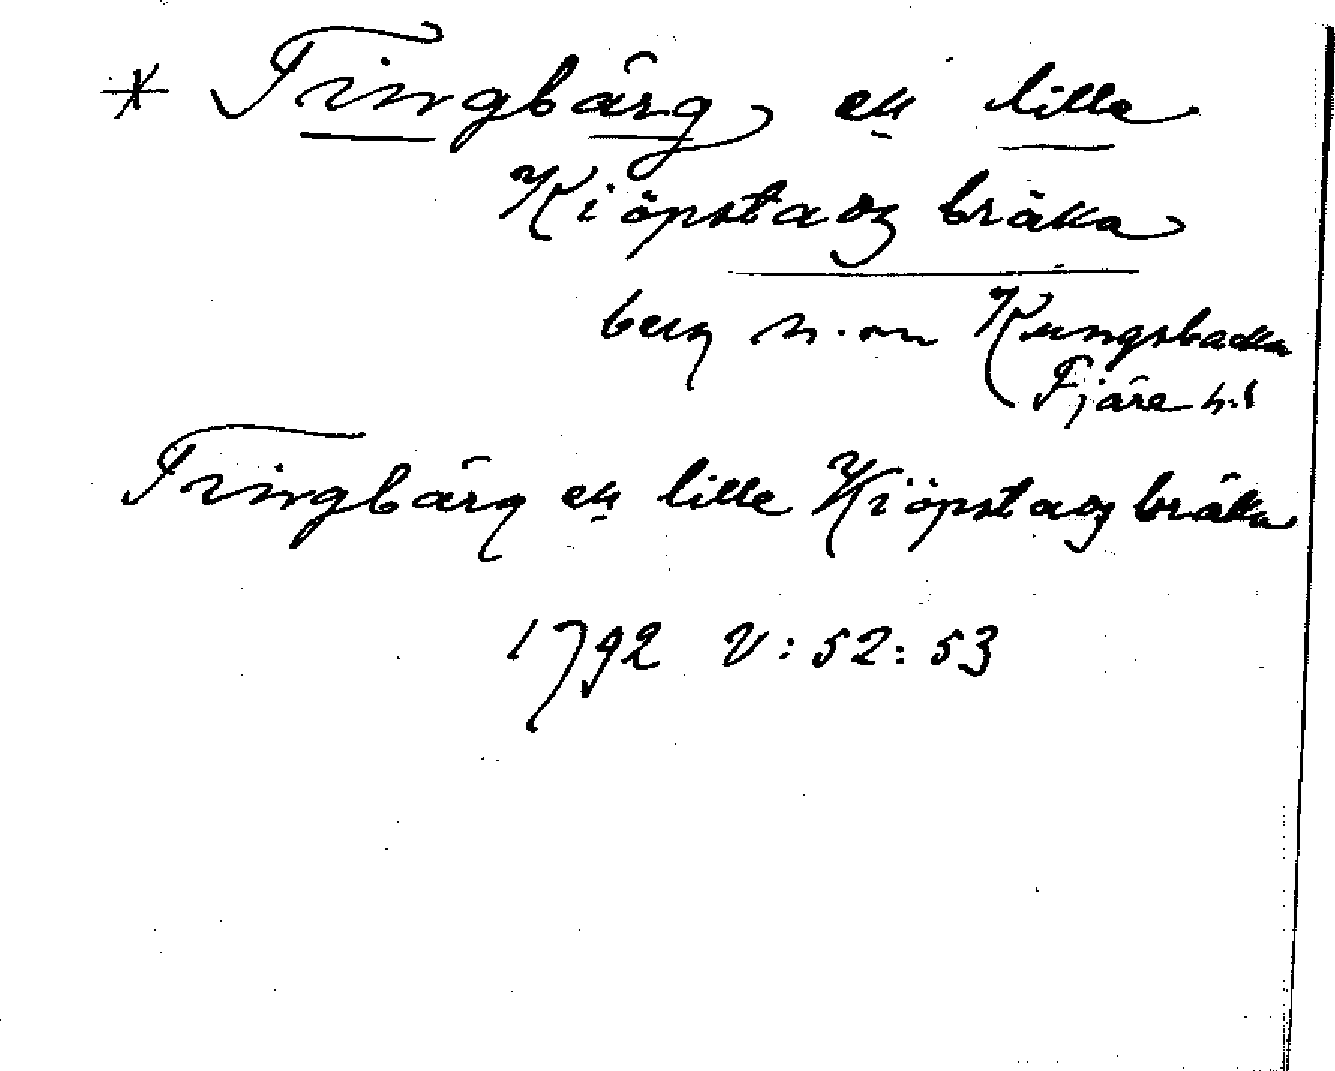 * Tringbärg ell lille
Kiöpstadz bräka
berg n. om Kungsbacka
Fjäre h:d
Tringbärg ell lille Kiöpstadz bräka
1792 V: 52: 53